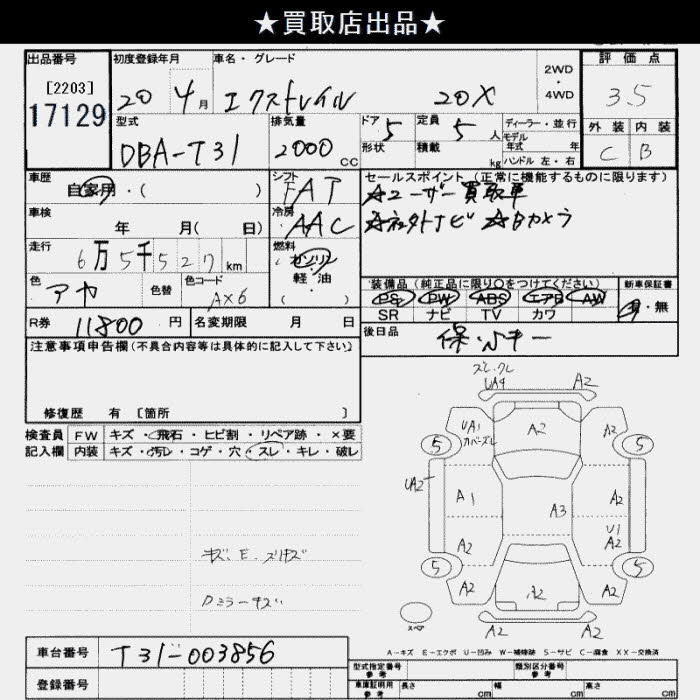 ★買取店出品★
出品番号 初度登録年月 車名・グレード 2WD・4WD 評価点
[2203]
17129
20 年 4月 エクストレイル 20X 3.5
型式 排気量 ドア 定員 ディーラー・並行 外装 内装
DBA-T31 2000 CC 5 5人 モデル年式 年 C B
形状 積載 kg ハンドル 左・右
車歴 シフト セールスポイント (正常に機能するものに限ります)
自家用・( ) FAT ☆ユーザー買取車
車検 冷房 ☆社外ナビ ☆Bカメラ
年 月( 日) AAC
走行 燃料
6万5千527km ガソリン
軽・油
( )
色 色替 色コード 装備品 (純正品に限り○をつけてください) 新車保証書
アヤ AX6 PS PW ABS エアB AW 有・無
SR ナビ TV カワ
R券 11800円 名変期限 月 日 後日品
保・
注意事項申告欄(不具合内容等は具体的に記入して下さい)
修復歴 有 [箇所 ]
検査員 FW キズ・飛石・ヒビ割・リペア跡・×要
記入欄 内装 キズ・汚レ・コゲ・穴・スレ・キレ・破レ
ズレ.クレ
UA4 A2
UA1 A2 A2
カバーズレ
5 5
UA2
A1 A3 A2
U1
A2 A2
5 5
A2 A2 A2
A2 A2
キズ、E、スリキズ
Dミラーキズ
スペア
A-キズ E-エクボ U-凹み W-補修跡 S-サビ C-腐食 XX-交換済
車台番号 T31-003856
登録番号
型式指定番号 参考 類別区分番号 参考
車庫証明用 参考 長さ cm 幅 cm 高さ cm